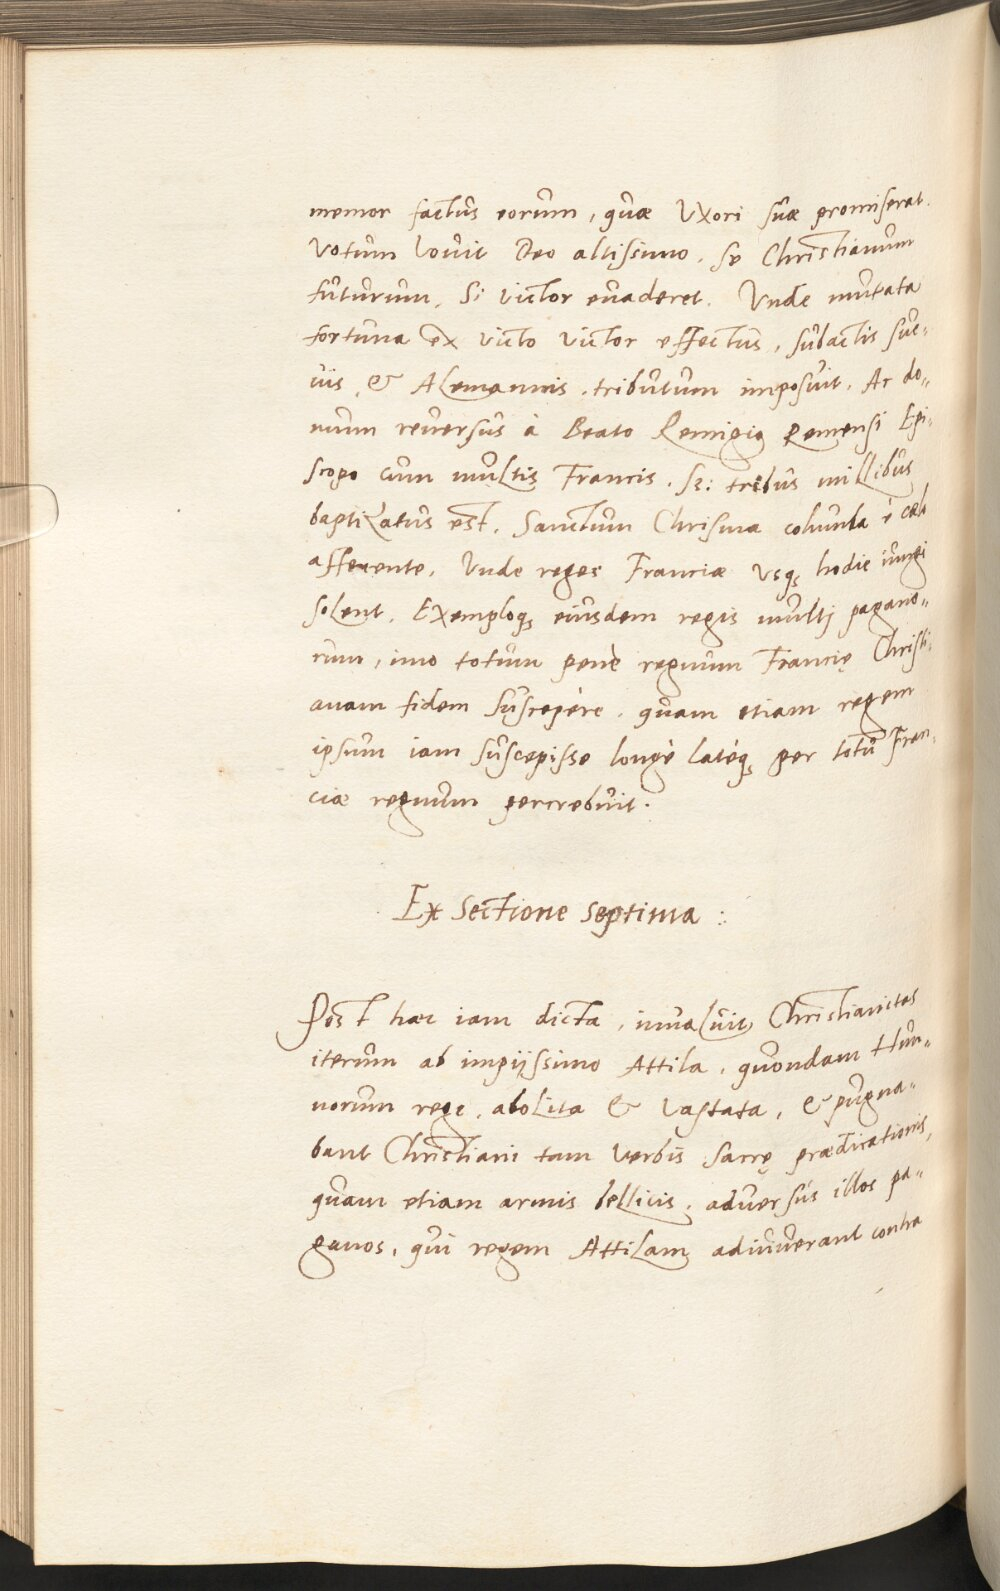 memor factus eorum, quæ Uxori suæ promiserat.
Votum Vovit Deo altissimo, se Christianum
futurum, Si victor evaderet. Unde mutata
fortuna ex victo victor effectus, subactis sue-
uis & Alemannis, tributum imposuit. Ac do-
mum reversus à Beato Remigio Remensi Epi-
scopo cum multis Francis, sz: tribus millibus
baptizatus est. Sanctum Chrisma columba è cælo
afferente. Unde reges Franciæ Usq; hodie inungi
solent. Exemploq; eiusdem regis multi pagano-
rum, imo totum penè regnum Francię Christi-
anam fidem suscepêre, quam etiam regem
ipsum iam suscepisse longè latéq; per totũ Fran-
ciæ regnum percrebuit.
Ex Sectione septima :
Post hæc iam dicta, invaluit Christianitas
iterum ab impijssimo Attila, quondam Hun-
norum rege, abolita & Vastata, & pugna-
bant Christiani tam Verbis sacrę prædicationis,
quam etiam armis bellicis, adversus illos pa-
ganos, qui regem Attilam adiuverant contra